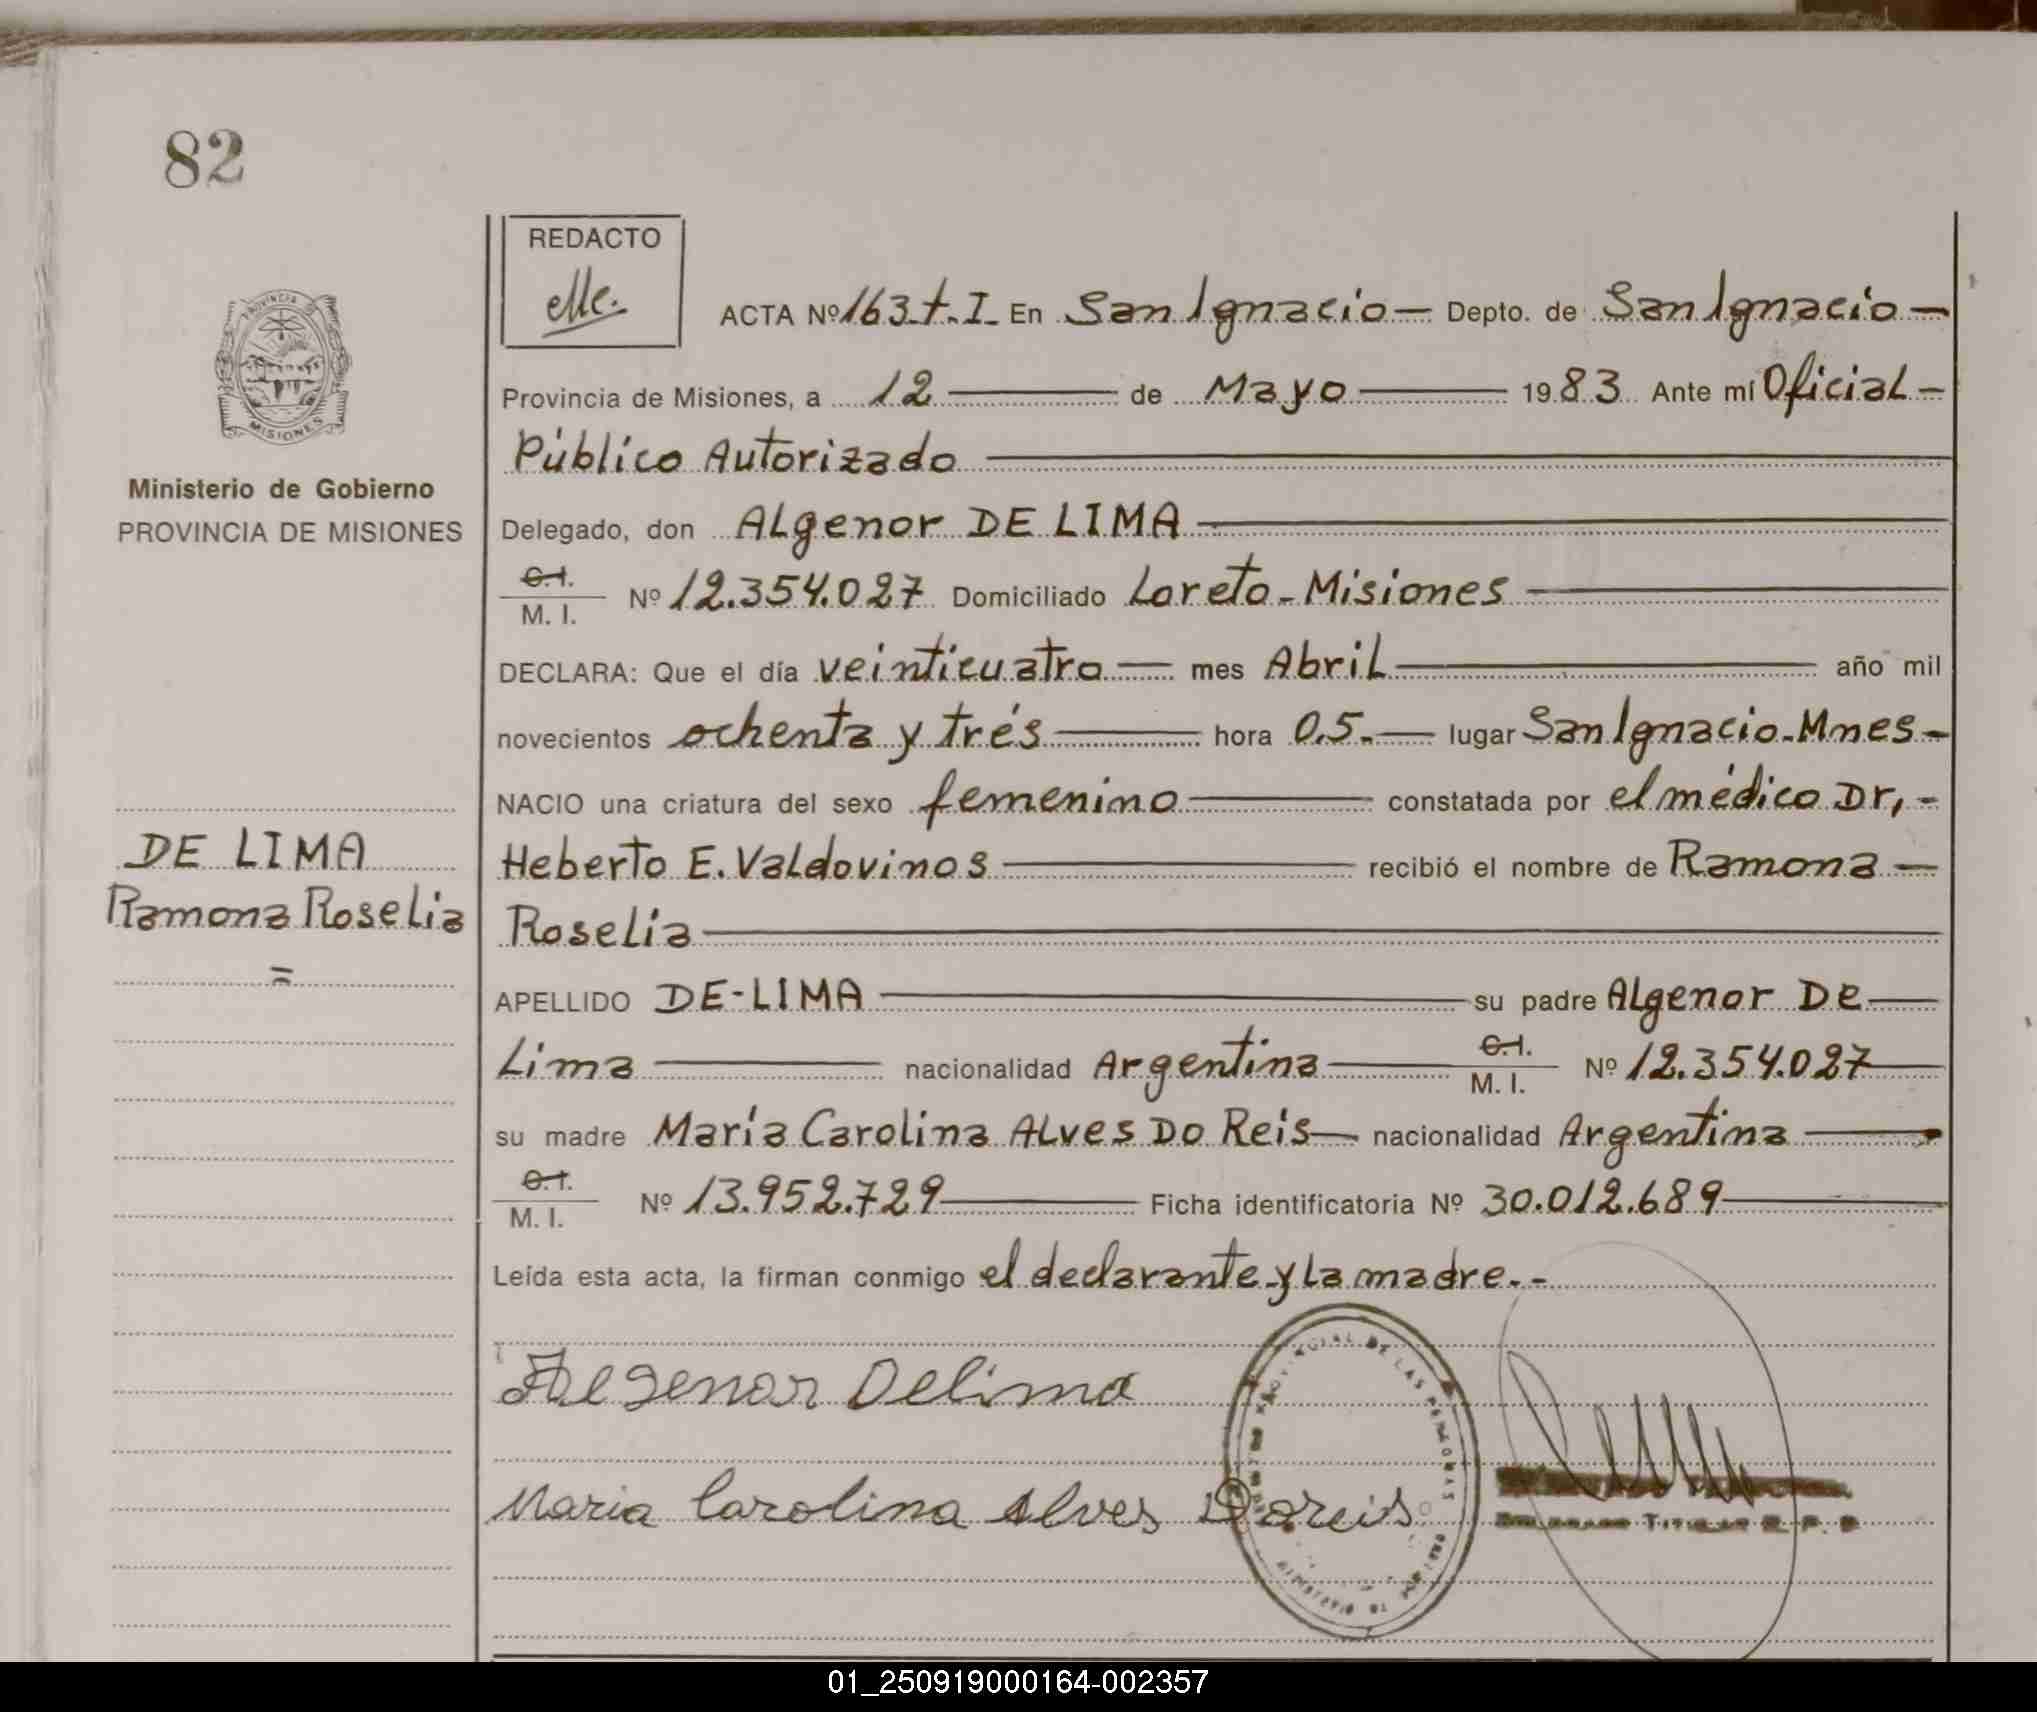 82
REDACTO
PROVINCIA
MISIONES
Ministerio de Gobierno
PROVINCIA DE MISIONES
DE LIMA
Ramona Roselia
=
ACTA Nº 163 t. I En San Ignacio — Depto. de San Ignacio —
Provincia de Misiones, a 12 — de Mayo — 1983 Ante mí Oficial —
Público Autorizado —
Delegado, don ALgenor DE LIMA —
C.I. / M. I. Nº 12.354.027 Domiciliado Loreto - Misiones —
DECLARA: Que el día veinticuatro — mes Abril — año mil
novecientos ochenta y trés — hora 0.5. — lugar San Ignacio - Mnes —
NACIO una criatura del sexo femenino — constatada por el médico Dr, -
Heberto E. Valdovinos — recibió el nombre de Ramona —
Roselia —
APELLIDO DE-LIMA — su padre ALgenor De —
Lima — nacionalidad Argentina — C.I. / M. I. Nº 12.354.027 —
su madre María Carolina ALves Do Reis — nacionalidad Argentina —
C.I. / M. I. Nº 13.952.729 — Ficha identificatoria Nº 30.012.689 —
Leída esta acta, la firman conmigo el declarante y La madre. -
Algenor Delima
Maria Carolina Alves Doreis
DE LAS PERSONAS
01_250919000164-002357